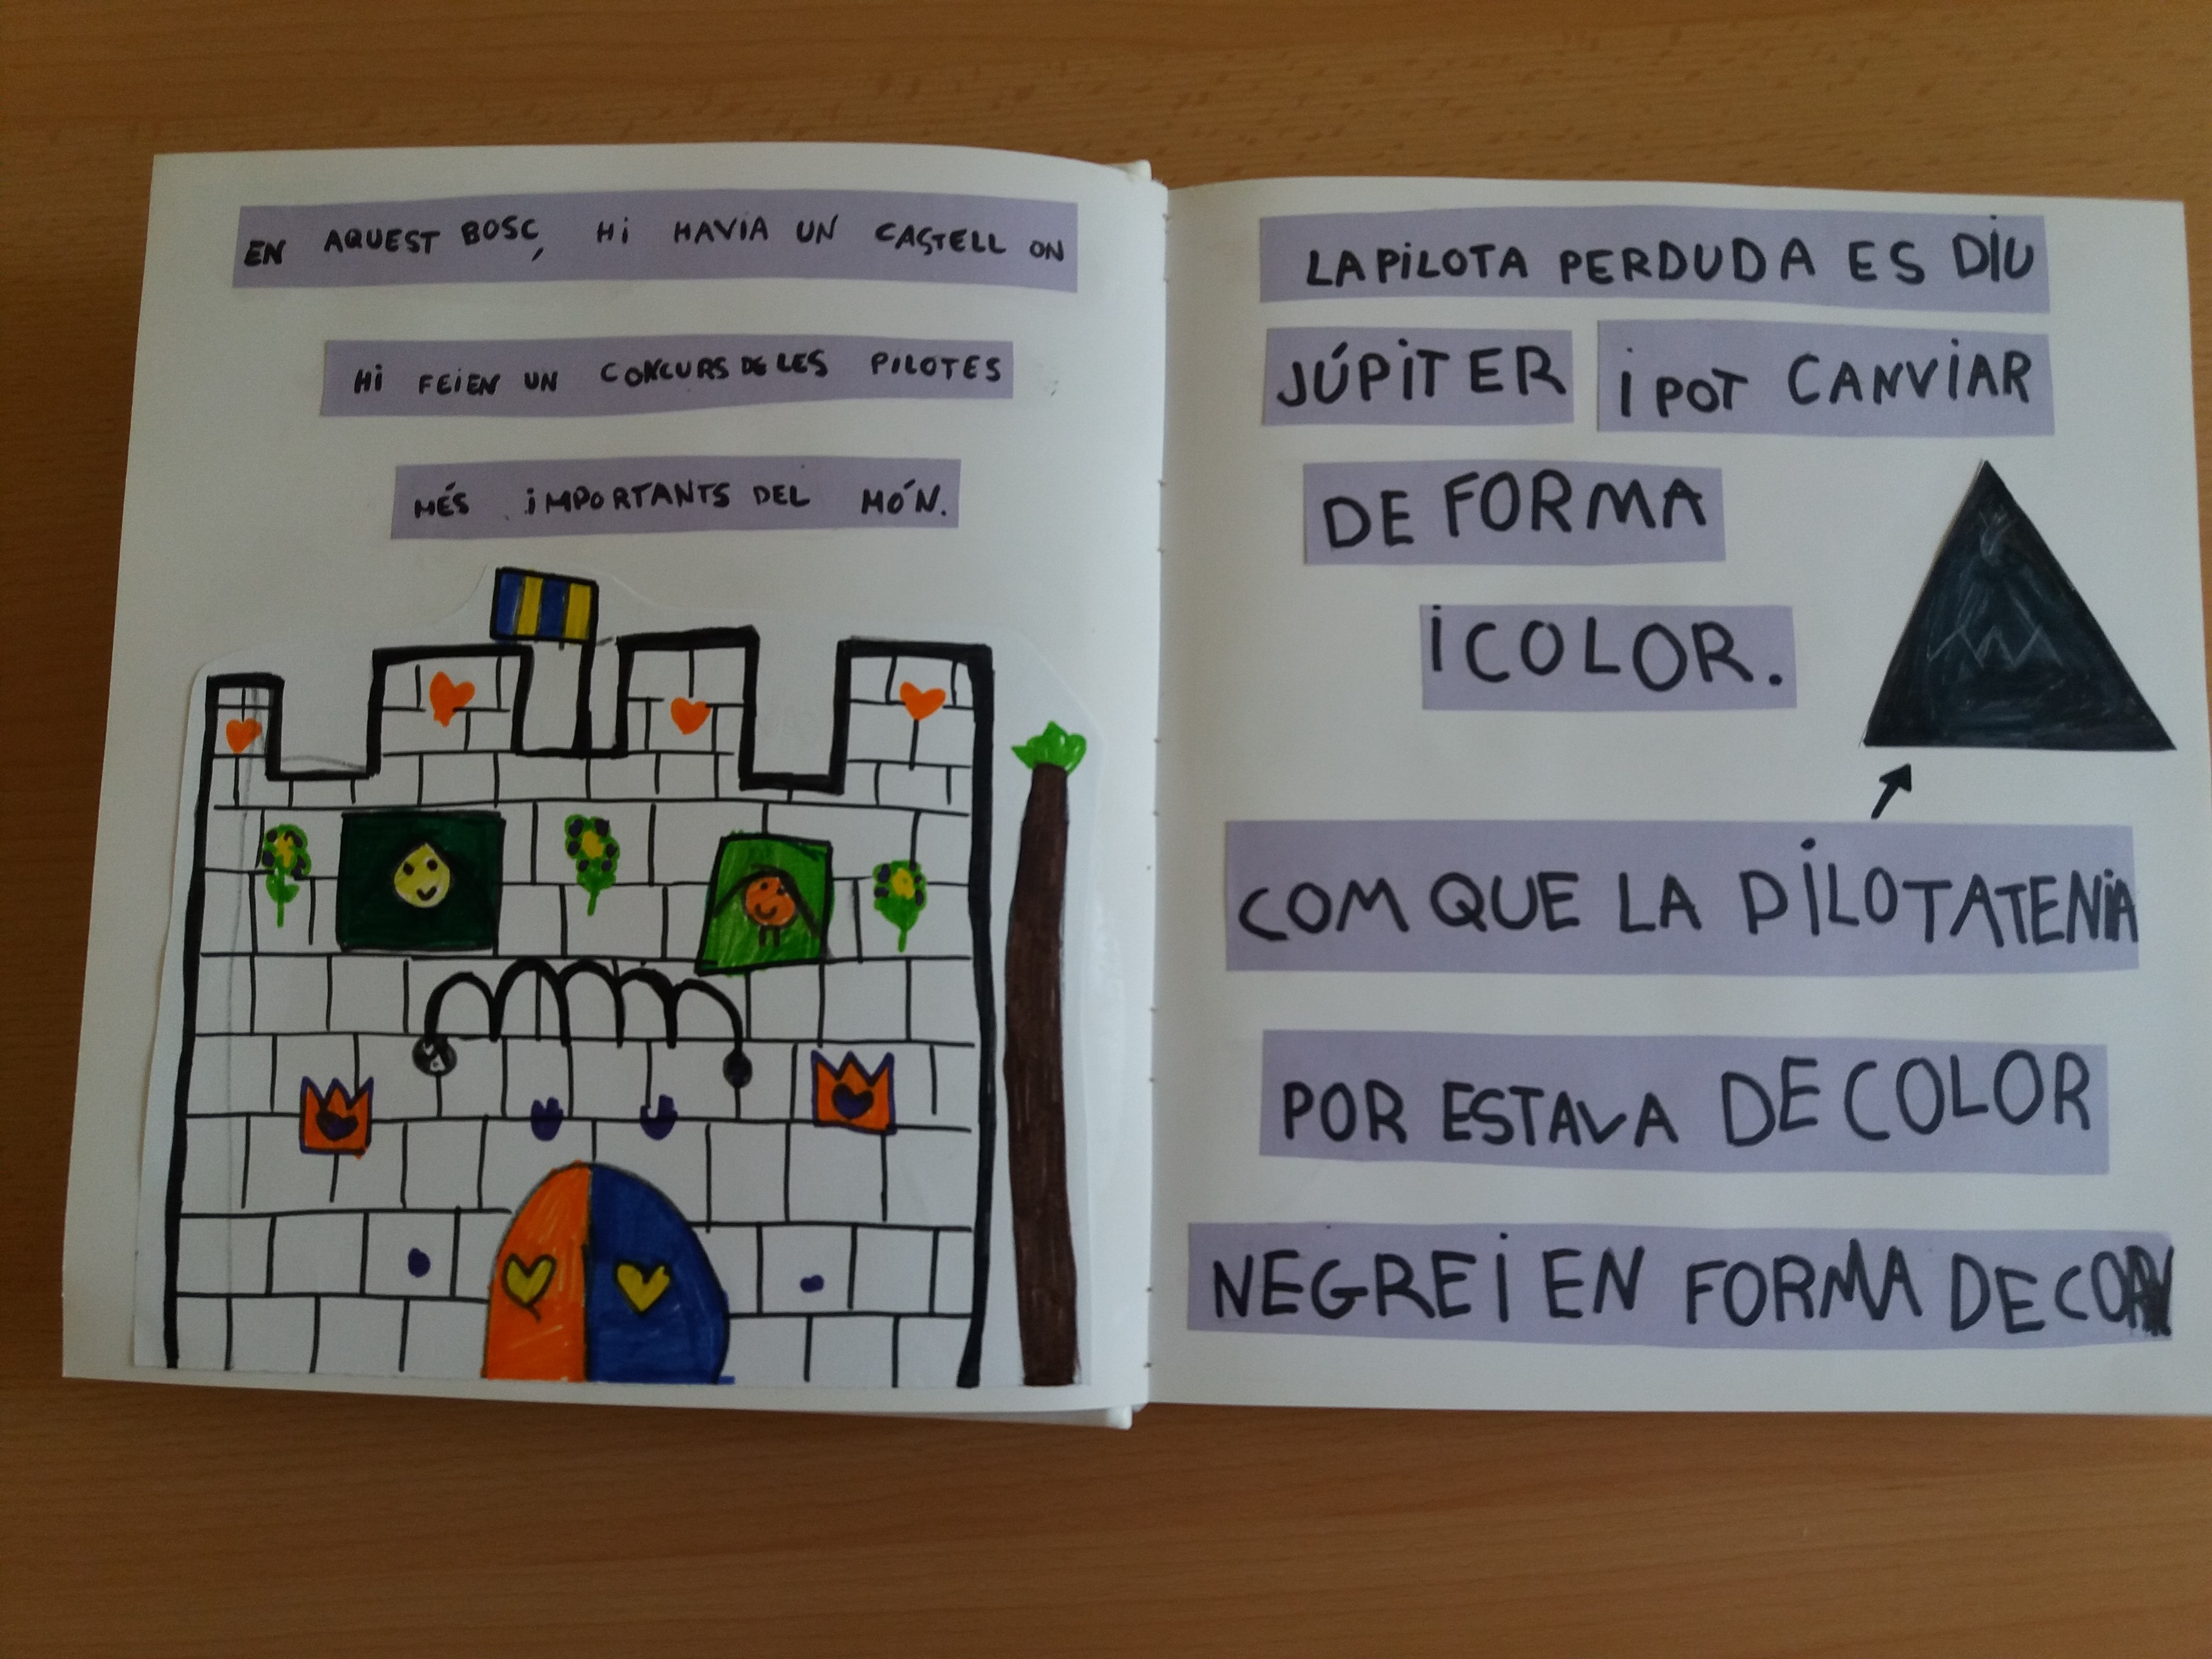 EN AQUEST BOSC, HI HAVIA UN CASTELL ON
HI FEIEN UN CONCURS DE LES PILOTES
MÉS IMPORTANTS DEL MÓN.
LA PILOTA PERDUDA ES DIU
JÚPITER I POT CANVIAR
DE FORMA
I COLOR.
COM QUE LA PILOTA TENIA
POR ESTAVA DE COLOR
NEGRE I EN FORMA DE